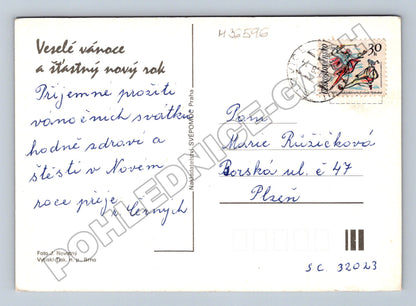 M36596
Veselé vánoce
a šťastný nový rok
Příjemné prožití
vánočních svátků
hodně zdraví a
štěstí v Novém
roce přeje
r. Černých
Foto J. Novotný
Nakladatelství SVÉPOMOC Praha
30
Paní
Marie Růžičková
Borská ul. č 47
Plzeň
S.C. 32023
POHLEDNICE-CACH